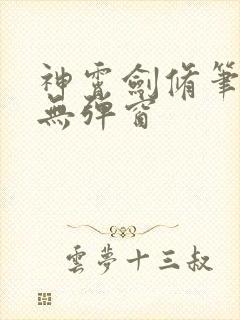 神霄劍脩筆
無彈窗
雲夢十三叔